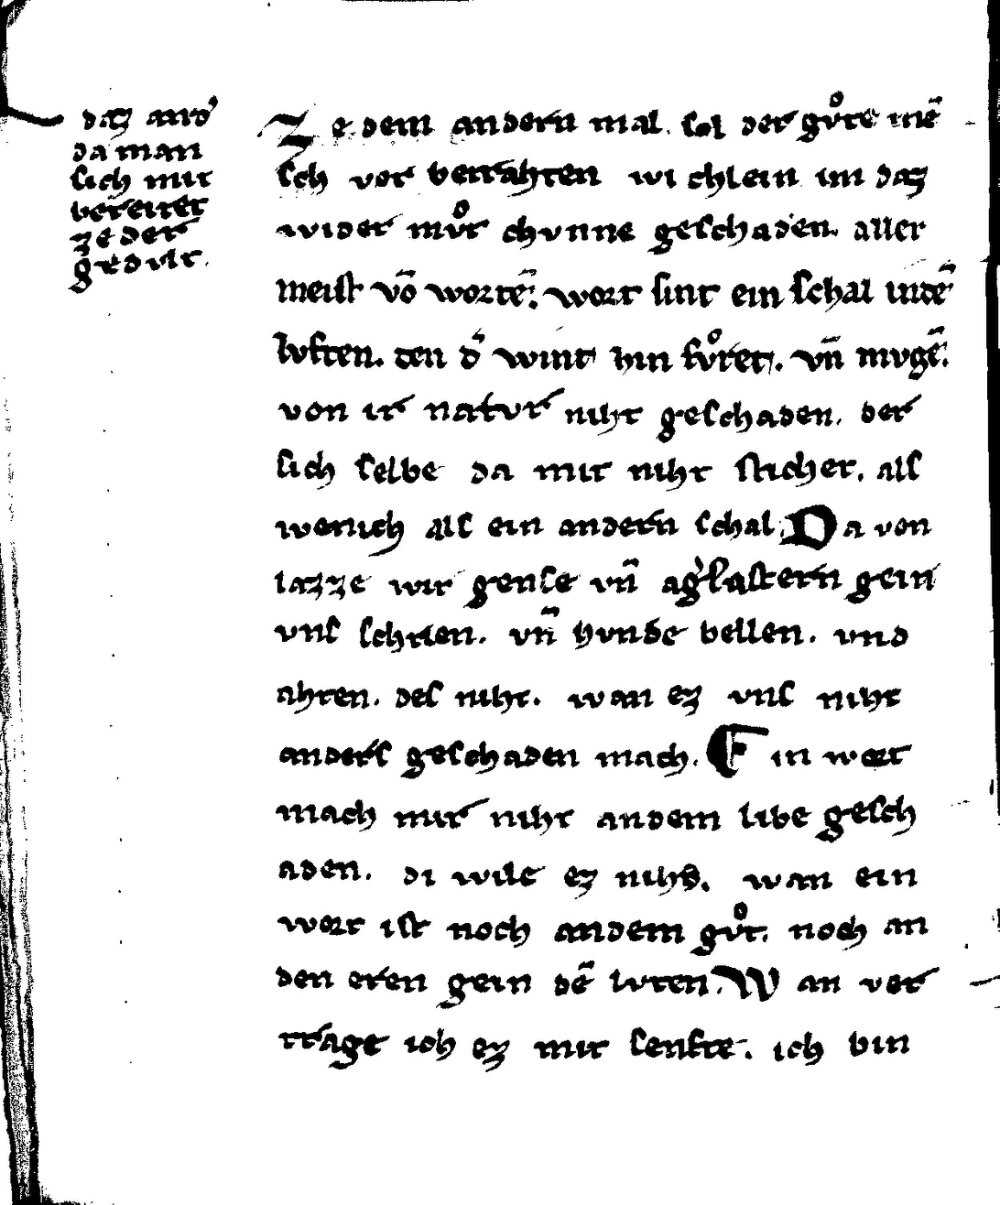 daz and'
da man
sich mit
bereitet
ze der
gedult.
Ze dem andern mal. sol der gůte mē
sch vor betrahten wi chlein im daz
wider můt chunne geschaden. aller
meist vō wortē. wort sint ein schal indē
lvften. den d' wint hin fůret. vn̄ mvgē.
von ir natvr niht geschaden. der
sich selbe da mit niht stichet. als
wenich als ein andern schal. Da von
lazze wir gense vn̄ ag'lastern gein
vns schrien. vn̄ hvnde bellen. vnd
ahten. des niht. wan ez vns niht
anders geschaden mach. Ein wort
mach mir niht andem libe gesch
aden. di wile ez nihs. wan ein
wort ist noch andem gůt. noch an
den eren gein dē lvten. Wan ver
trage ich ez mit senfte. ich bin